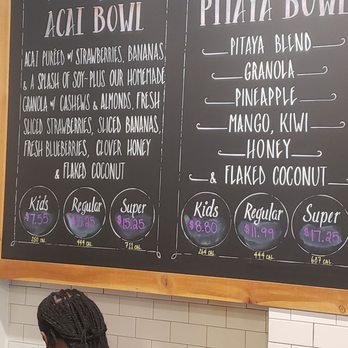 ACAI BOWL
ACAI PUREED W/ STRAWBERRIES, BANANAS,
& A SPLASH OF SOY-PLUS OUR HOMEMADE
GRANOLA W/ CASHEWS & ALMONDS, FRESH
SLICED STRAWBERRIES, SLICED BANANAS,
FRESH BLUEBERRIES, CLOVER HONEY
& FLAKED COCONUT
Kids
$7.55
Regular
Super
$15.25
444 CAL
711 CAL
PITAYA BOWL
PITAYA BLEND
GRANOLA
PINEAPPLE
MANGO, KIWI
HONEY
& FLAKED COCONUT
Kids
$8.80
Regular
$11.99
Super
$17.25
264 CAL
444 CAL
687 CAL